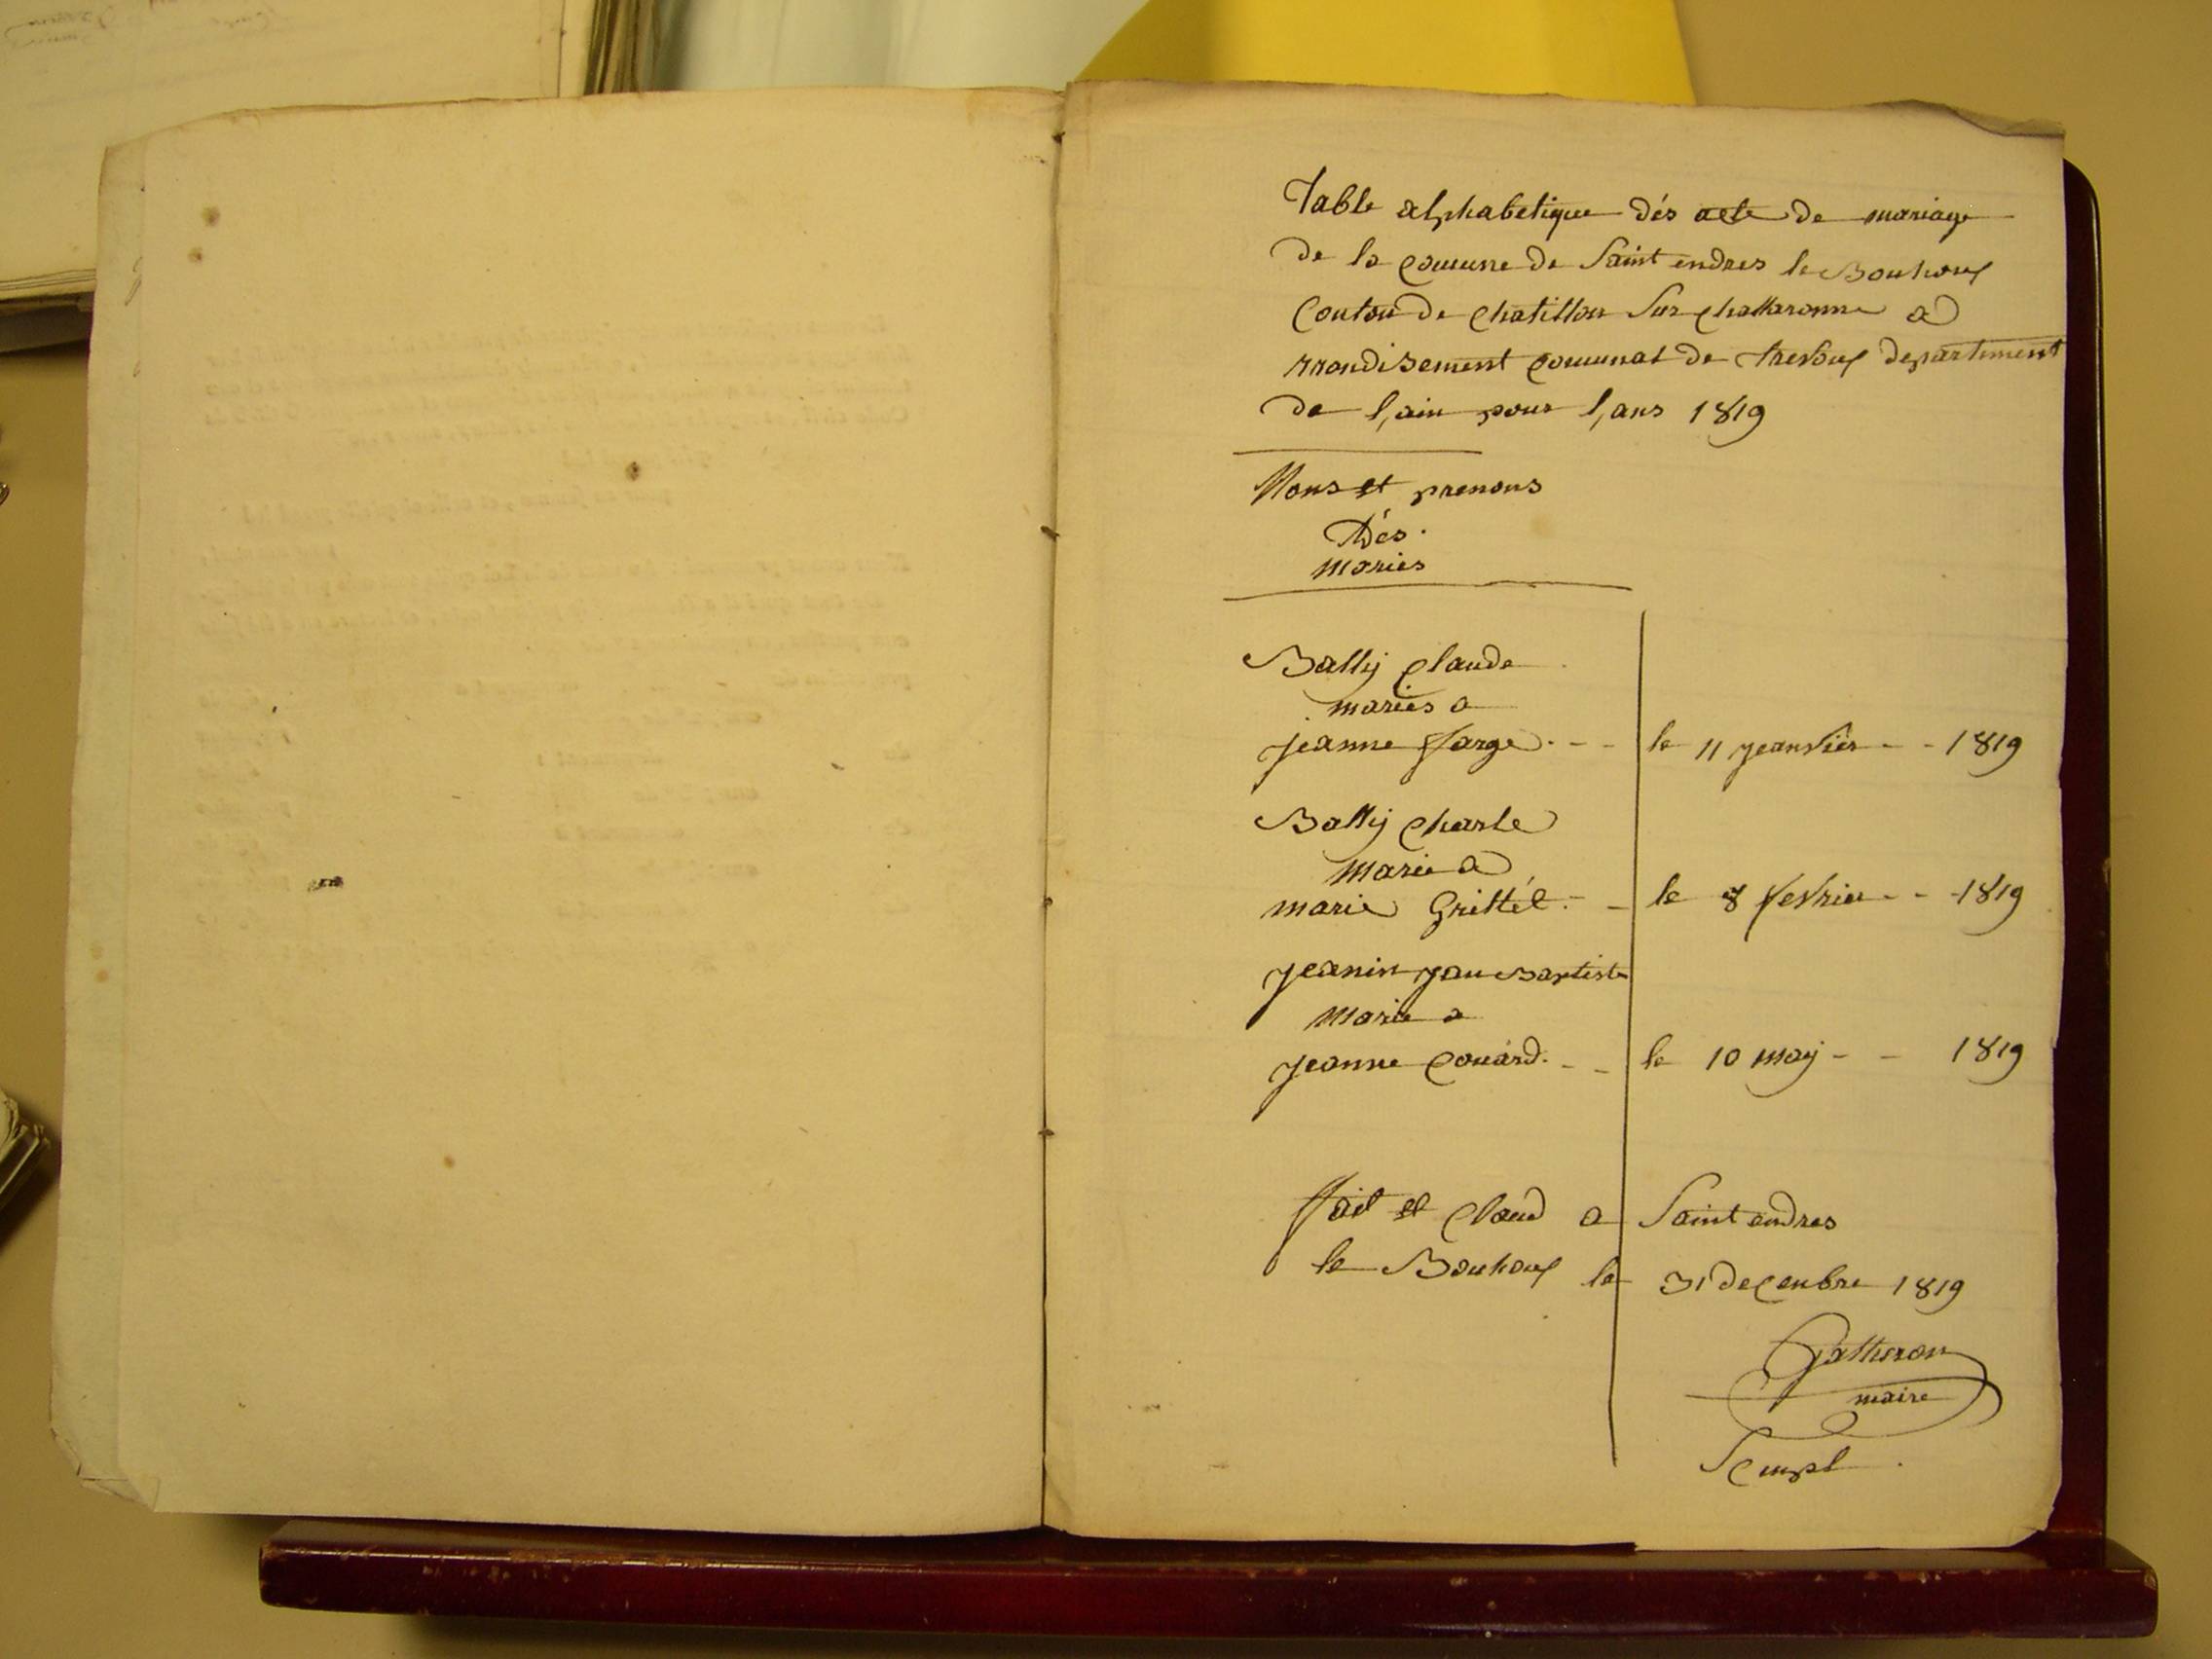 Table alphabetique dés acte de mariage
de la comune de Saint endres le Bouhoux
Conton de Chatillon Sur Challaronne a
rrondisement comunal de trevoux departement
de l,ain pour l,ans 1819
Nons et prenons
Dés
mariés
Bally Claude
mariés a
jeanne farge
le 11 jeanvièr 1819
Bally Charle
marie a
marie Grillét
le 8 fevrier 1819
jeanin jean Baptiste
marie a
jeanne Couard
le 10 may 1819
fait et Cloud a Saint endres
le Bouhoux le 31 decenbre 1819
Gatheron
maire